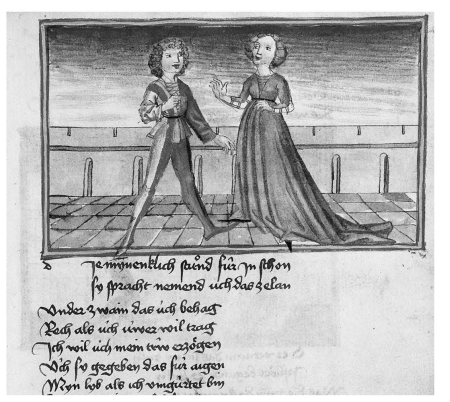 Je mynenklich stuͦnd fúr jn schon
sy sprach nemend uch das ze lan
Under zwain das úch behag
Rech als úch úwer wil trag
Ich wil úch mein trw erzögen
Uch sy gegeben das fúr augen
Myn lyb als ich umgúrtet bin